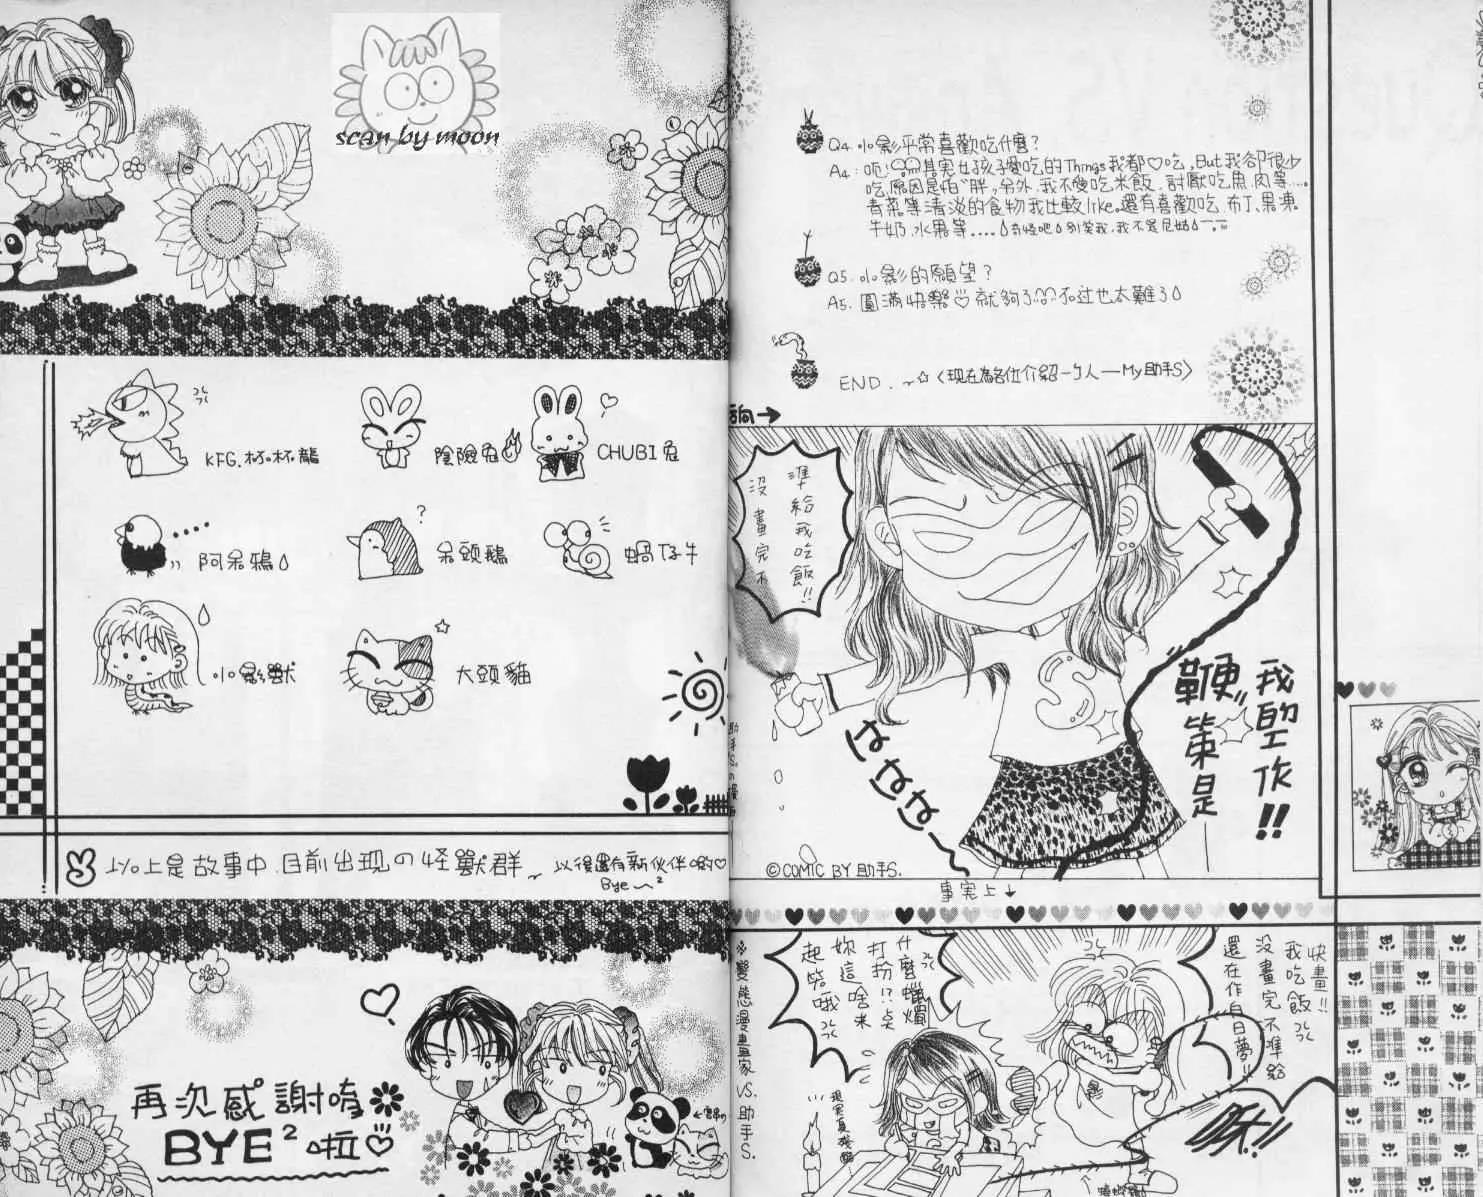 scan by moon
KFG.杯杯龍
陰險兔
CHUBI兔
阿呆鴉
呆頭鵝
蝸仔牛
小影獸
大頭貓
以上是故事中.目前出現の怪獸群~
以後還有新伙伴喲♡
Bye~²
再次感謝唷
BYE²啦♡
Q4.小影平常喜歡吃什麼?
A4:呃!其实女孩子愛吃的Things我都♡吃,But我卻很少
吃,原因是怕"胖,另外,我不愛吃米飯.討厭吃魚.肉等....
青菜等清淡的食物我比較like.還有喜歡吃.布丁、果凍
牛奶.水果等....奇怪吧 別笑我,我不是尼姑
Q5.小影的願望?
A5.圓滿快樂♡就夠了 不过也太難了
END.~☆〈現在為各位介紹一个人—My助手S〉
方向→
沒畫完不
準給我吃飯!!
我的工作!!
鞭策是—
はははは〜
©COMIC BY 助手S.
事実上↓
※變態漫畫家VS.助手S.
什麼蠟燭
打扮!?桌
妳這啥米
起笑哦
快畫!!
我吃飯
沒畫完不準給
還在作白日夢!!
呀!!